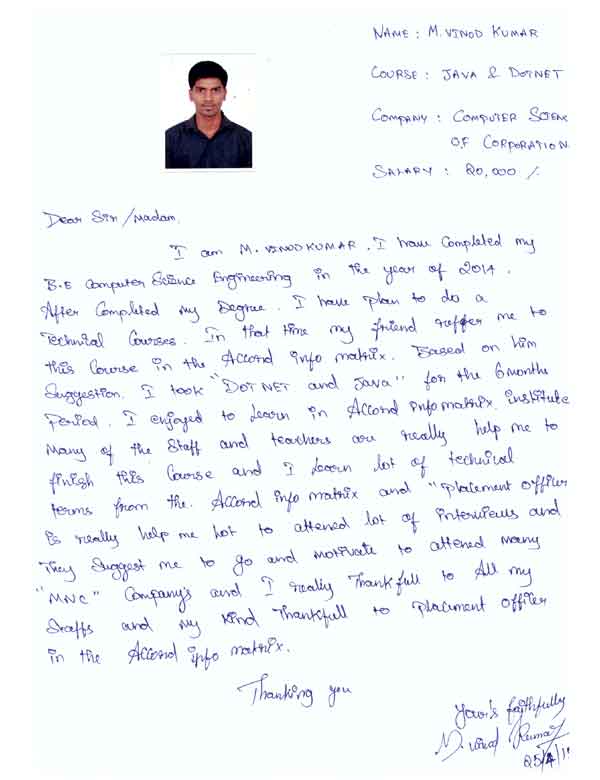 NAME : M. VINOD KUMAR
COURSE : JAVA & DOTNET
COMPANY : COMPUTER SCIENC
OF CORPORATION
SALARY : 20,000 /.
Dear Sir / Madam,
I am M. VINODKUMAR. I have completed my
B.E Computer Science Engineering in the year of 2014.
After Completed my Degree. I have plan to do a
Technical Courses. In that time my friend reffer me to
this Course in the Accord info matrix. Based on him
Suggestion. I took "DOT NET and Java" for the 6 months
Period. I enjoyed to learn in Accord info matrix institute
Many of the Staff and teachers are really help me to
finish this Course and I learn lot of technical
terms from the. Accord info matrix and "Placement officer
is really help me lot to attened lot of interviews and
They Suggest me to go and motivate to attened many
"MNC" Company's and I really Thankfull to All my
Staffs and my kind Thankfull to Placement officer
in the Accord info matrix.
Thanking you
Your's faithfully
M. Vinod Kumar
25/4/1